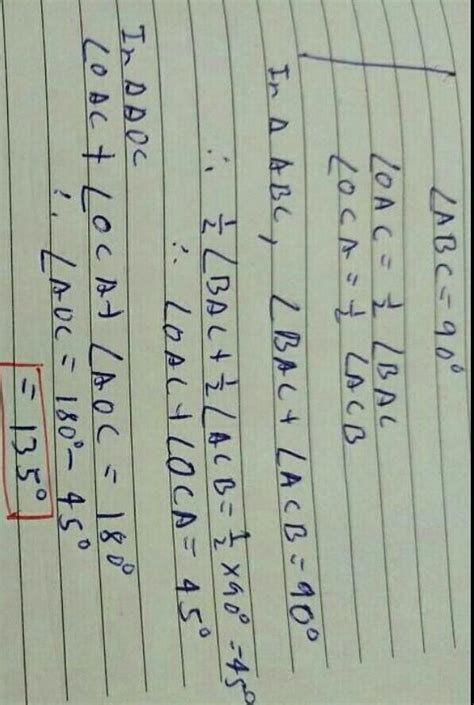 ∠ABC = 90°
∠OAC = 1/2 ∠BAC
∠OCA = 1/2 ∠ACB
In Δ ABC, ∠BAC + ∠ACB = 90°
∴ 1/2 ∠BAC + 1/2 ∠ACB = 1/2 × 90° = 45°
∴ ∠OAC + ∠OCA = 45°
In Δ AOC
∠OAC + ∠OCA + ∠AOC = 180°
∴ ∠AOC = 180° - 45°
= 135°